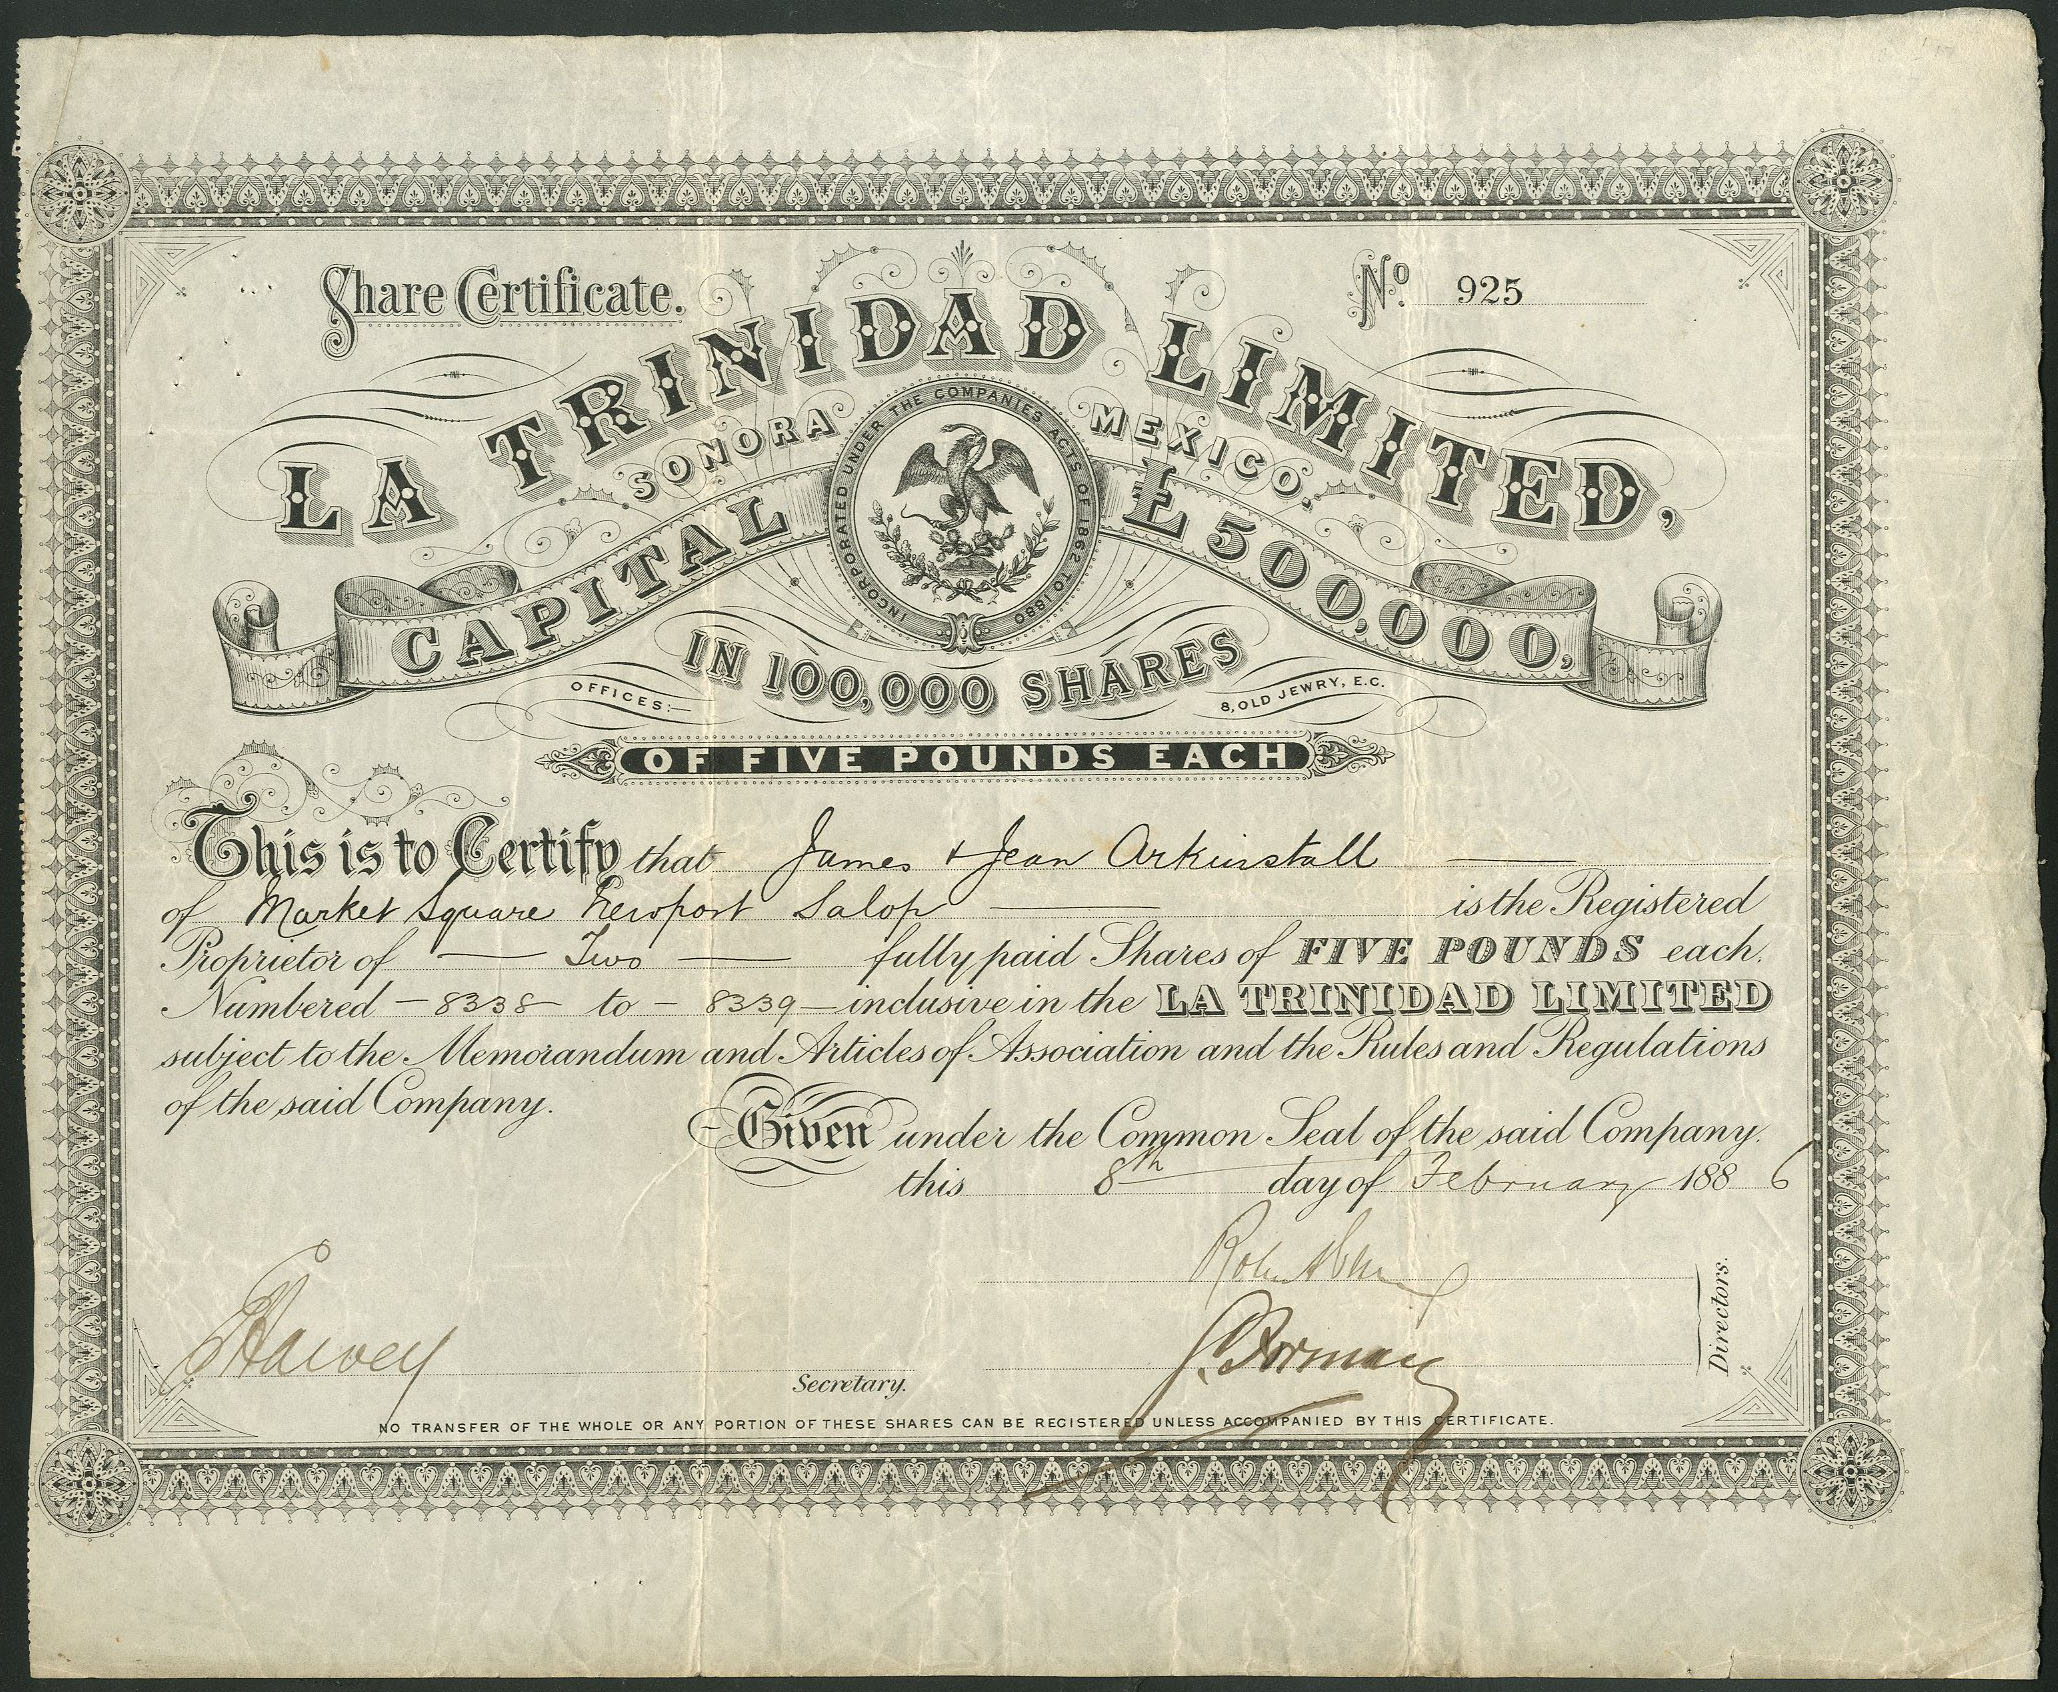 Share Certificate.
No. 925
LA TRINIDAD LIMITED,
SONORA MEXICO,
INCORPORATED UNDER THE COMPANIES ACTS OF 1862 TO 1880
CAPITAL £500,000,
IN 100,000 SHARES
OFFICES:— 8, OLD JEWRY, E.C.
OF FIVE POUNDS EACH
This is to Certify that James & Jean Arkinstall
of Market Square Newport Salop is the Registered
Proprietor of — Two — fully paid Shares of FIVE POUNDS each.
Numbered — 8338 — to — 8339 — inclusive in the LA TRINIDAD LIMITED
subject to the Memorandum and Articles of Association and the Rules and Regulations
of the said Company.
Given under the Common Seal of the said Company.
this 8th day of February 1886
Directors.
Harvey
Secretary.
NO TRANSFER OF THE WHOLE OR ANY PORTION OF THESE SHARES CAN BE REGISTERED UNLESS ACCOMPANIED BY THIS CERTIFICATE.